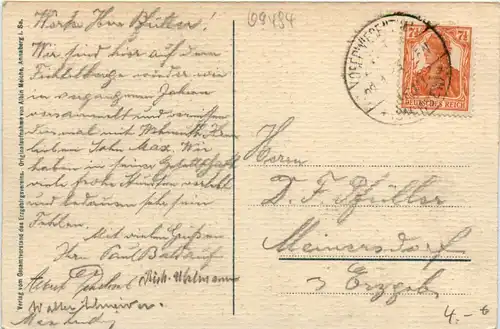 69484
Werter Herr Pfüller!
Wir sind hier auf dem
Fichtelberge wieder wie
in vergangenen Jahren
versammelt und vermissen
diesmal mit Wehmuth Ihren
lieben Sohn Max. Wir
haben in seiner Gesellschaft
viele frohe Stunden verlebt
und bedauern sehr sein
Fehlen.
Mit vielen Grüßen
Ihr Paul Baldauf
Rich. Uhlmann
Walter
Verlag vom Gesamtvorstand des Erzgebirgsvereins. Originalaufnahme von Albin Meiche, Annaberg i. Sa.
7½ 7½
DEUTSCHES REICH
OBERWIESENTHAL
Herrn
D. F. Pfüller
Meinersdorf
Erzgeb.
4.-